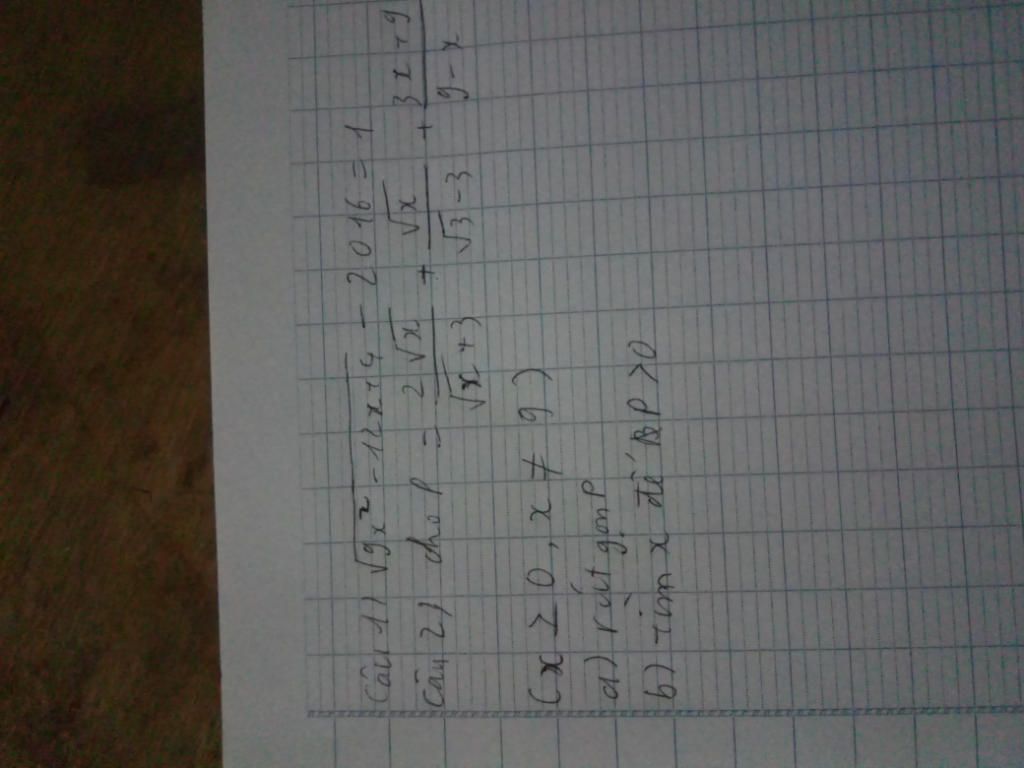 Câu 1) √9x² - 12x + 4 - 2016 = 1
Câu 2) cho P = 2√x / √x + 3 + √x / √3 - 3 + 3x + 9 / 9 - x
(x ≥ 0, x ≠ 9)
a) rút gọn P
b) tìm x để P > 0